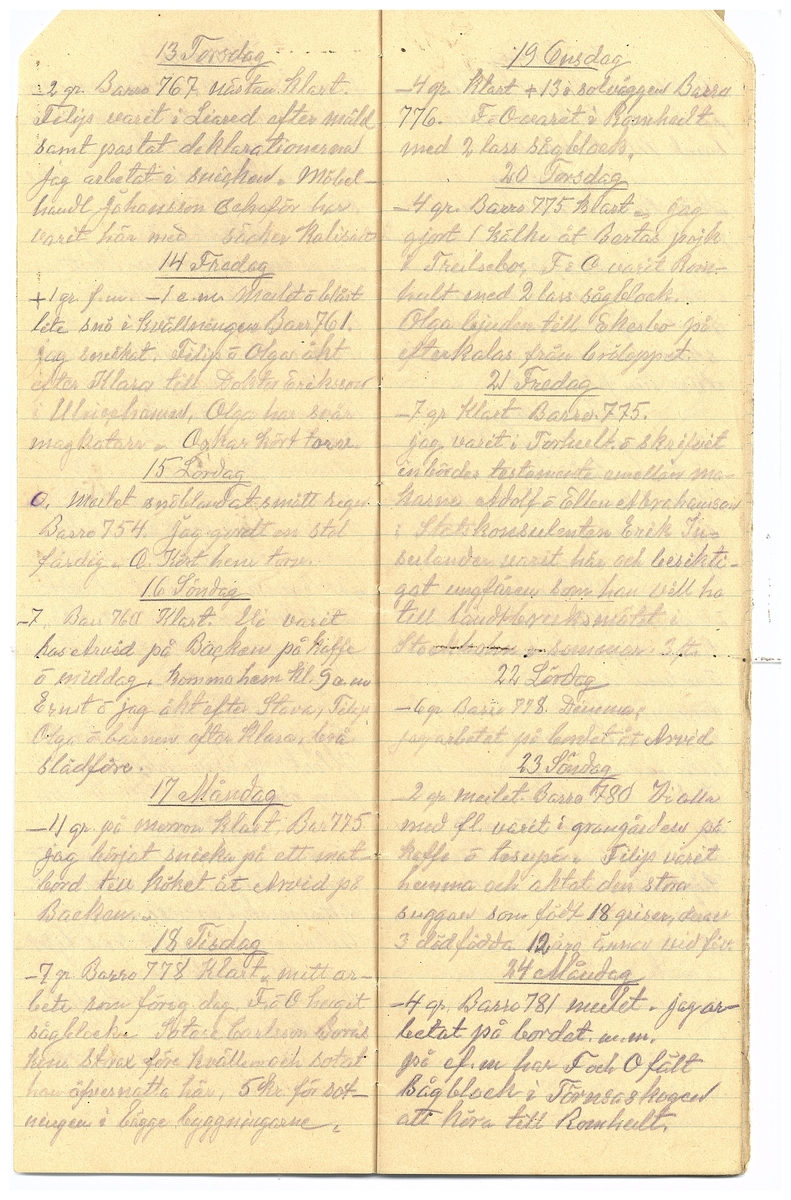 13 Torsdag
-2 gr. Barro 767 nästan klart.
Filip varit i Liared efter mäld
samt postat deklarationerna
jag arbetat i snickeri. Möbel-
handl. Johansson o chaför har
varit här med säcker Kalisalt
14 Fredag
+1 gr. f.m. -1 e.m. Mulet o blåst
lite snö i kvällningen Barr 761.
jag snickat. Filip o Olga åkt
efter Klara till Doktor Eriksson
i Ulricehamn, Olga har svår
magkatarr. Oskar kört torv.
15 Lördag
0. Mulet snöblandat smått regn.
Barro 754. Jag gjordt en stol
färdig. O. Kört hem torv.
16 Söndag
-7. Barr 760 Klart. Vi varit
hos Arvid på Backen på kaffe
o middag, komma hem kl. 9 e.m
Ernst o jag åkt efter Stora, Filip
Olga o barnen efter Klara, bra
slädföre.
17 Måndag
-11 gr. på morron klart, Bar 775
jag börjat snicka på ett mat-
bord till köket åt Arvid på
Backen.
18 Tisdag
-7 gr. Barro 778 Klart, mitt ar-
bete som föreg. dag. F o O huget
sågblock. Sotare Carlsson Borås
kom strax före kvällen och sotat
han öfvernatta här, 5 Kr. för sot-
ningen i bägge byggningarne.
19 Onsdag
-4 gr. Klart +13 i solväggen Barro
776. F o O varit i Romhult
med 2 lass sågblock.
20 Torsdag
-4 gr. Barro 775 klart. jag
gjort 1 kälke åt Bertas pojk
i F o O varit Rom-
hult med 2 lass sågblock.
Olga bjuden till Ekesbo på
efterkalas från bröloppet.
21 Fredag
-7 gr Klart Barro. 775.
jag varit i Torhult o skrifvit
inbördes testamente emellan ma-
karne Adolf o Ellen Abrahamson
: Statskonsulenten Erik In-
selander varit här och besikti-
gat ungfåren som han vill ha
till landtbruksmötet i
Stockholm i sommar. 3 st.
22 Lördag
-6 gr Barro 778. Dimma,
jag arbetat på bordet åt Arvid
23 Söndag
-2 gr mulet. Barro 780 Vi alla
med fl. varit i grangården på
kaffe o tesupé. Filip varit
hemma och aktat den stora
suggan som födt 18 grisar, deraf
3 dödfödda 12 äro ännu vid lif.
24 Måndag
-4 gr. Barro 781 mulet. jag ar-
betat på bordet m.m.
på ef.m har F och O fält
Sågblock i Törnsaskogen
att köra till Romhult.